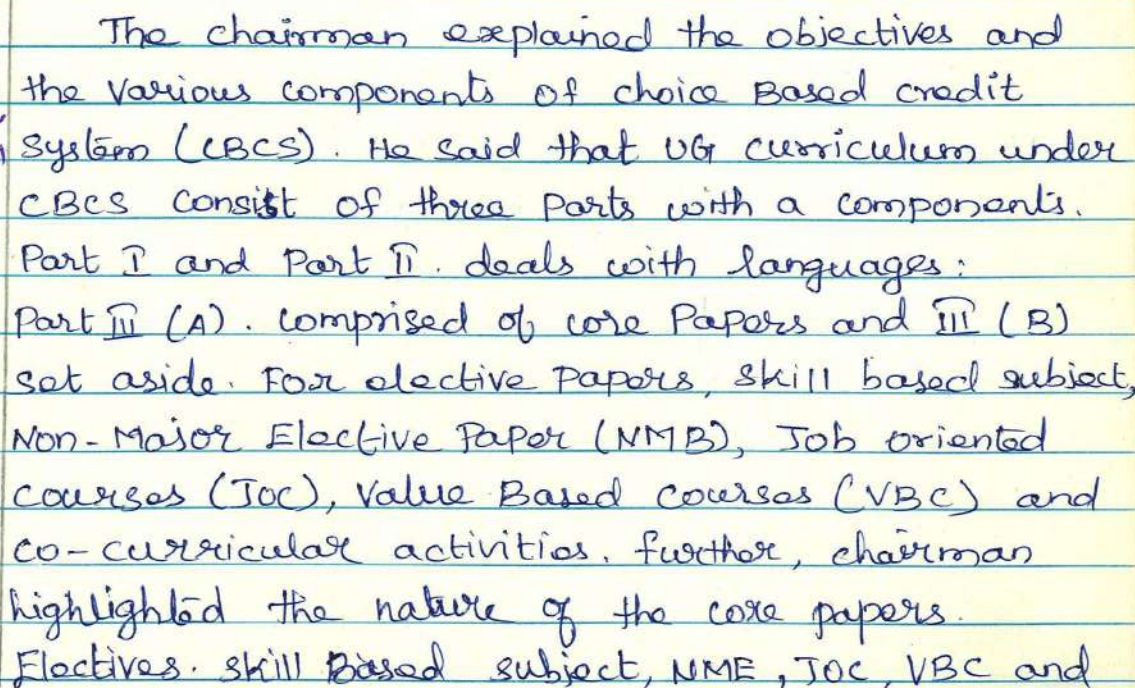 The chairman explained the objectives and
the various components of choice Based credit
System (CBCS). He said that UG curriculum under
CBCS consist of three parts with a components.
Part I and Part II. deals with languages:
Part III (A). comprised of core Papers and III (B)
set aside. For elective papers, skill based subject,
Non-Major Elective Paper (NMB), Job oriented
courses (JOC), Value Based courses (VBC) and
co-curricular activities. further, chairman
highlighted the nature of the core papers.
Electives. skill Based subject, NME, JOC, VBC and